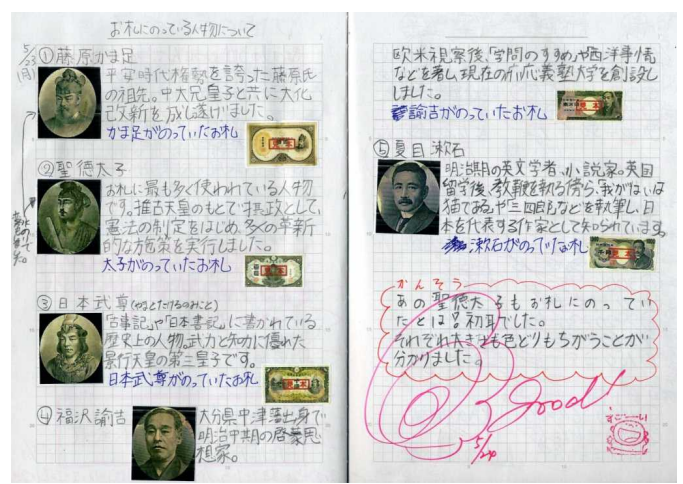 お札にのっている人物について
5/23
(月)
①藤原かま足
平安時代権勢を誇った藤原氏
の祖先。中大兄皇子と共に大化
改新を成し遂げました。
かま足がのっていたお札
②聖徳太子
お札に最も多く使われている人物
です。推古天皇のもとで摂政として、
憲法の制定をはじめ、多くの革新
的な施策を実行しました。
太子がのっていたお札
③日本武尊(やまとたけるのみこと)
「古事記」や「日本書記」に書かれている
歴史上の人物。武力と知力に優れた
景行天皇の第三皇子です。
日本武尊がのっていたお札
④福沢諭吉
大分県中津藩出身で
明治中期の啓蒙思
想家。
欧米視察後、「学問のすすめ」や「西洋事情」
などを著し、現在の義塾大学を創設
しました。
諭吉がのっていたお札
⑤夏目漱石
明治期の英文学者、小説家。英国
留学後、教鞭を執る傍ら、「我がはいは
猫である」や「三四郎」などを執筆し、日
本を代表する作家として知られています。
漱石がのっていたお札
かんそう
あの聖徳太子もお札にのってい
たとは!?初耳でした。
それぞれ大きさも色どりもちがうことが
分かりました。
Good!
5/24